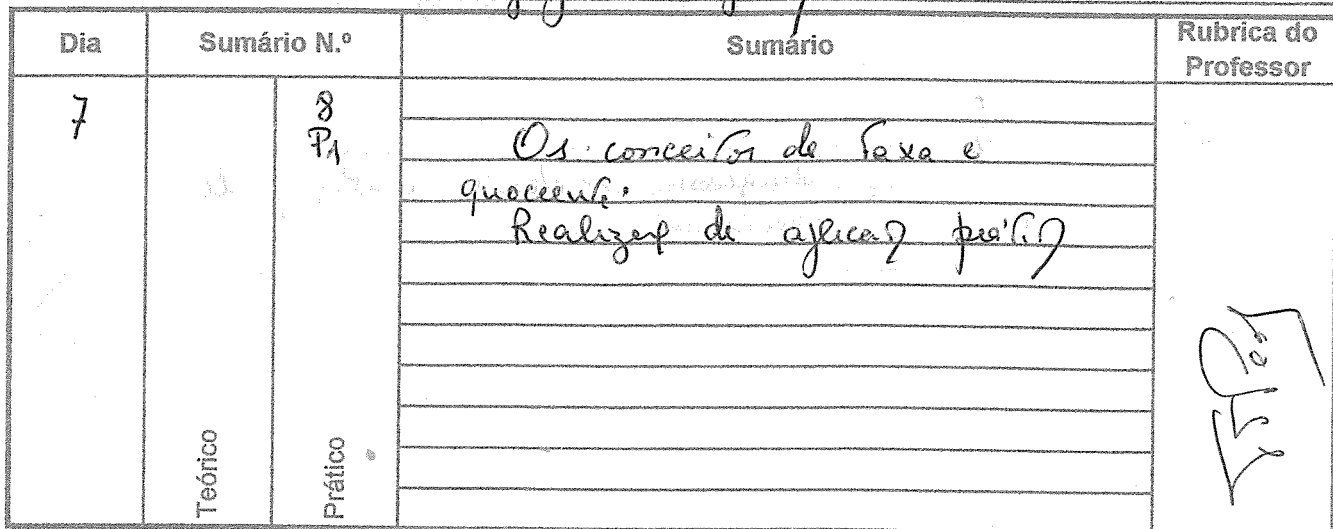 Dia Sumário N.º Sumário Rubrica do
Professor
7 8
P1
Os conceitos de taxa e
quociente.
Realização de aplicação prática
Teórico Prático